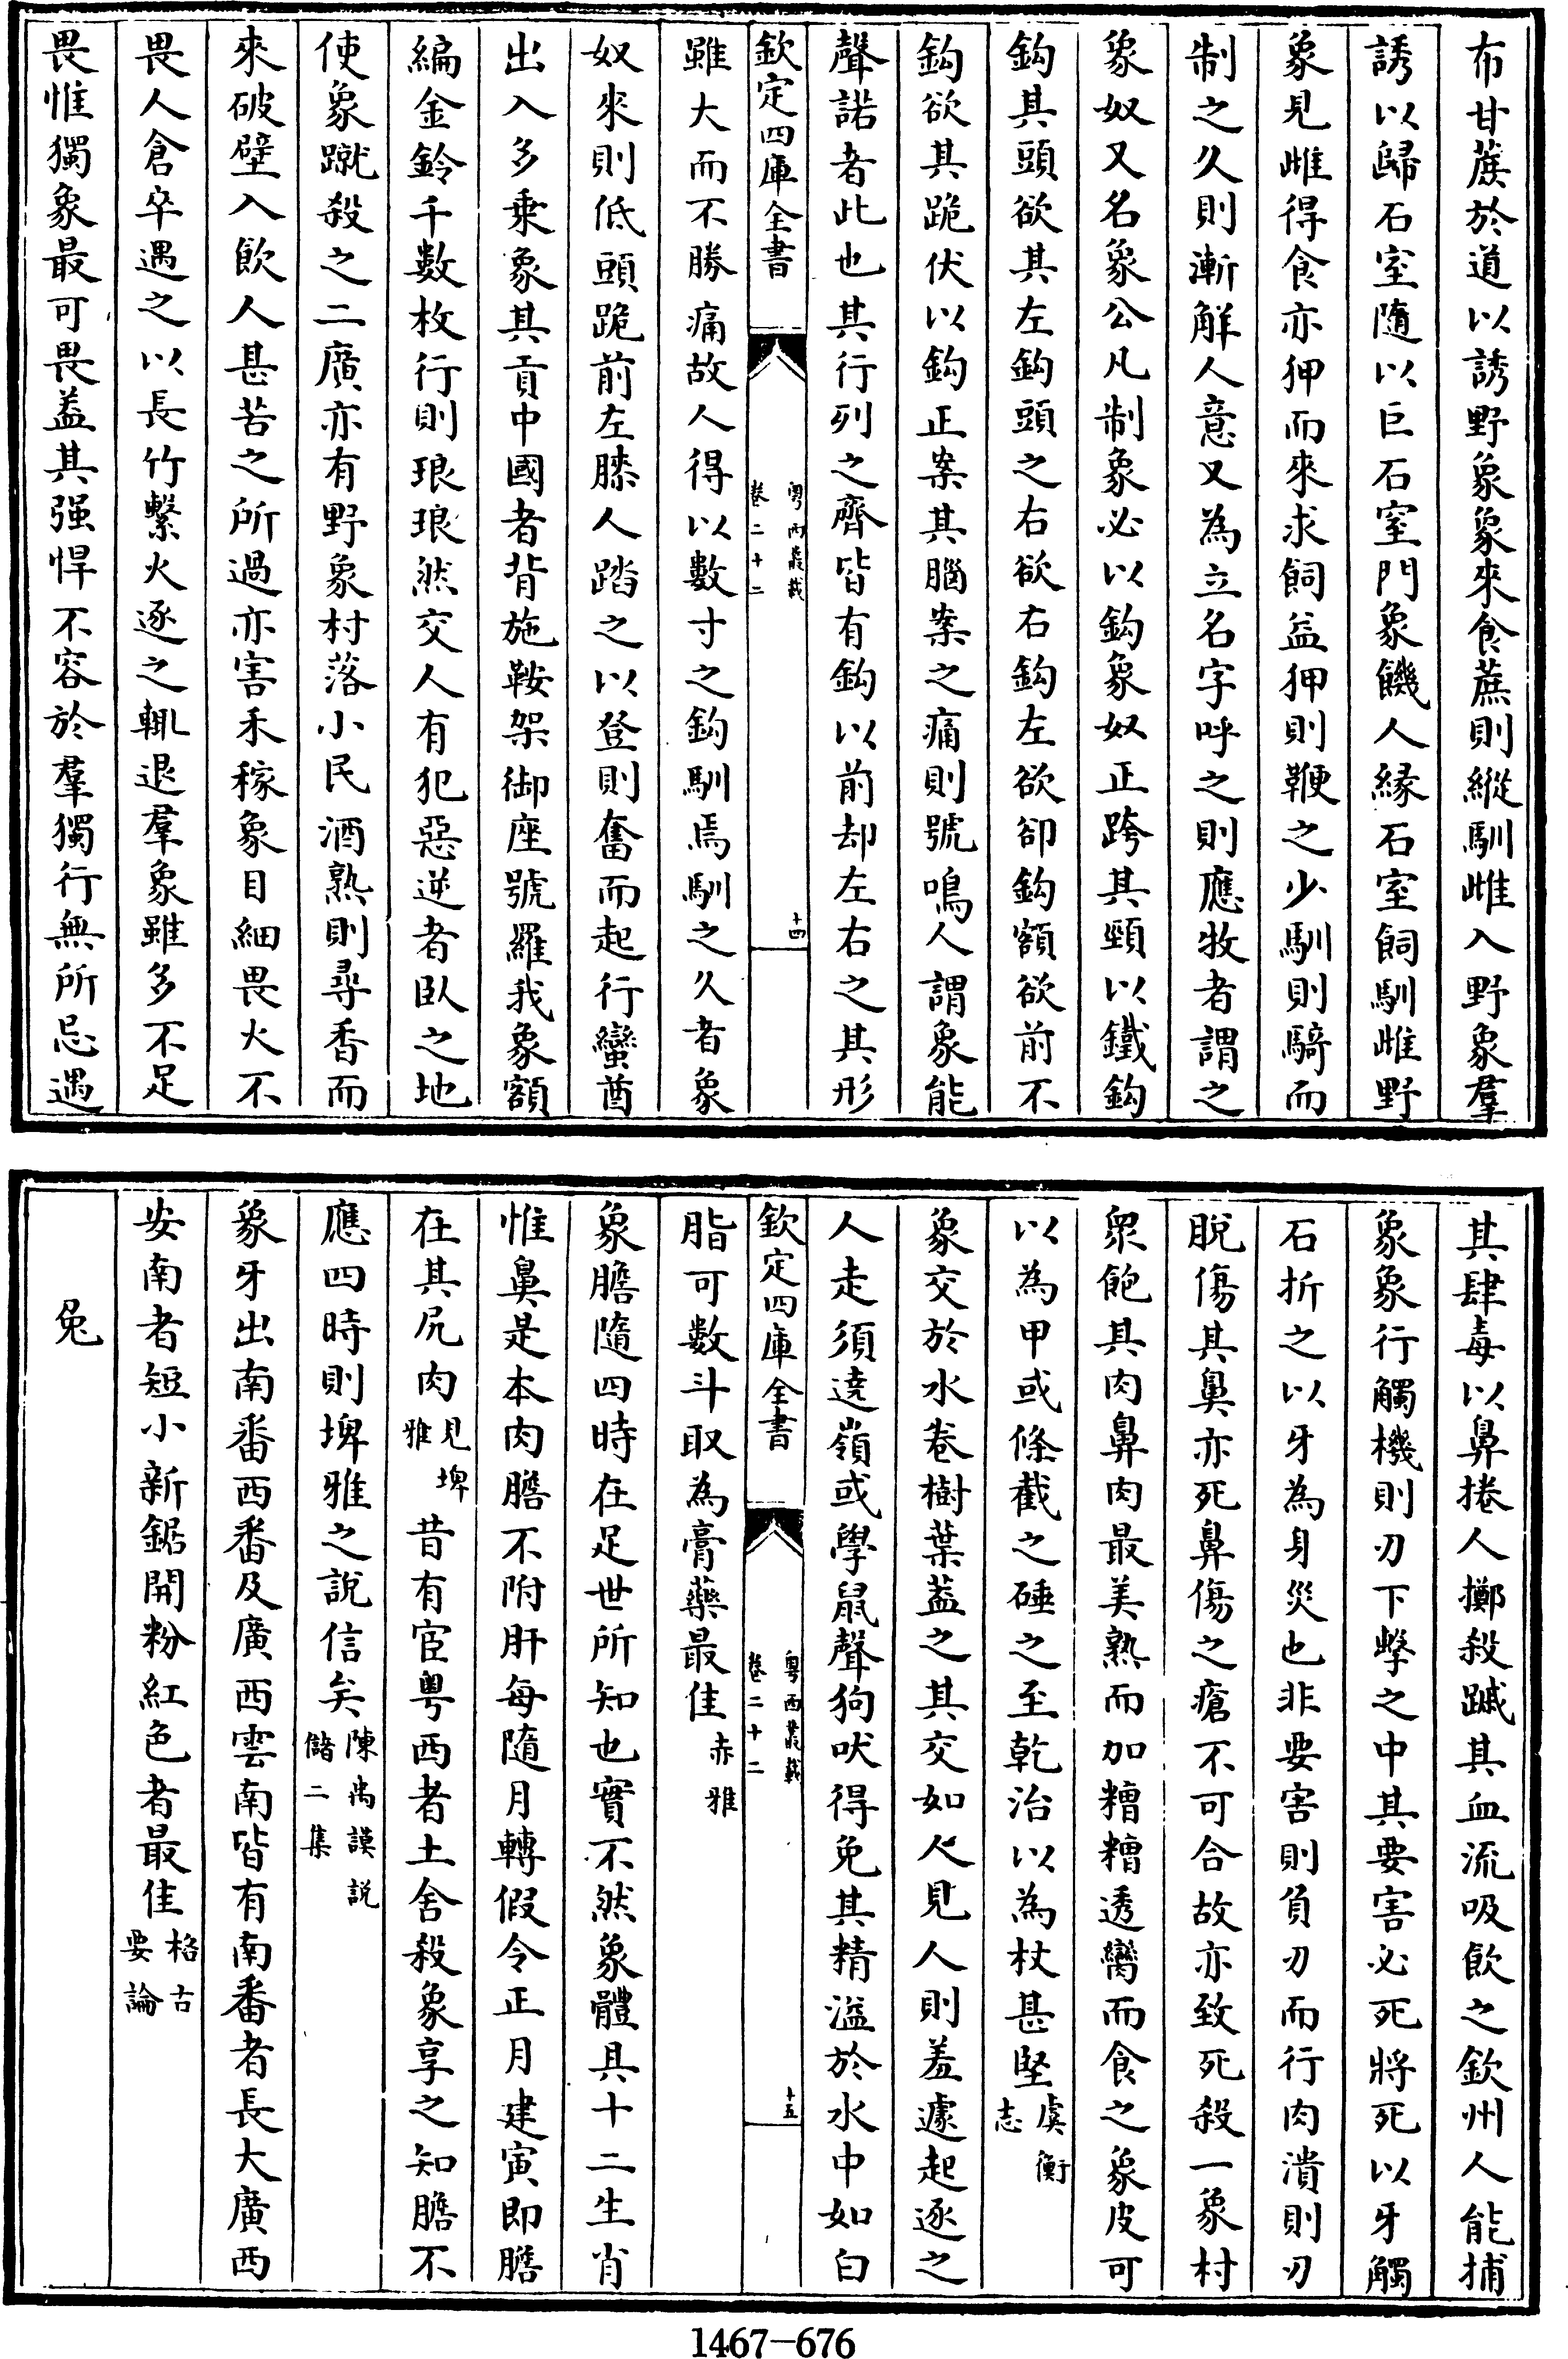 布甘蔗於道以誘野象象來食蔗則縱馴雌入野象羣
誘以歸石室隨以巨石窒門象饑人縁石室飼馴雌野
象見雌得食亦狎而來求飼益狎則鞭之少馴則騎而
制之久則漸解人意又為立名字呼之則應牧者謂之
象奴又名象公凡制象必以鈎象奴正跨其頸以鐵鈎
鈎其頭欲其左鈎頭之右欲右鈎左欲卻鈎額欲前不
鈎欲其跪伏以鈎正案其腦案之痛則號鳴人謂象能
聲諾者此也其行列之齊皆有鈎以前却左右之其形
欽定四庫全書
粤西叢載
卷二十二
十四
雖大而不勝痛故人得以數寸之鈎馴焉馴之久者象
奴來則低頭跪前左膝人踏之以登則奮而起行蠻酋
出入多乗象其貢中國者背施鞍架御座號羅我象額
編金鈴千數枚行則琅琅然交人有犯惡逆者臥之地
使象蹴殺之二廣亦有野象村落小民酒熟則尋香而
來破壁入飲人甚苦之所過亦害禾稼象目細畏火不
畏人倉卒遇之以長竹繫火逐之輒退羣象雖多不足
畏惟獨象最可畏盖其强悍不容於羣獨行無所忌遇
其肆毒以鼻捲人擲殺蹴其血流吸飲之欽州人能捕
象象行觸機則刃下擊之中其要害必死將死以牙觸
石折之以牙為身災也非要害則負刃而行肉潰則刃
脫傷其鼻亦死鼻傷之瘡不可合故亦致死殺一象村
衆飽其肉鼻肉最美熟而加糟糟透臠而食之象皮可
以為甲或條截之硾之至乾治以為杖甚堅虞衡志
象交於水巻樹葉蓋之其交如人見人則羞遽起逐之
人走須遶嶺或學鼠聲狗吠得免其精溢於水中如白
欽定四庫全書
粤西叢載
卷二十二
十五
脂可數斗取為膏藥最佳赤雅
象膽隨四時在足世所知也實不然象體具十二生肖
惟鼻是本肉膽不附肝每隨月轉假令正月建寅即膽
在其虎肉見埤雅昔有宦粤西者土舍殺象享之知膽不
應四時則埤雅之說信矣陳禹謨説儲二集
象牙出南番西番及廣西雲南皆有南番者長大廣西
安南者短小新鋸開粉紅色者最佳格古要論
兔
1467-676